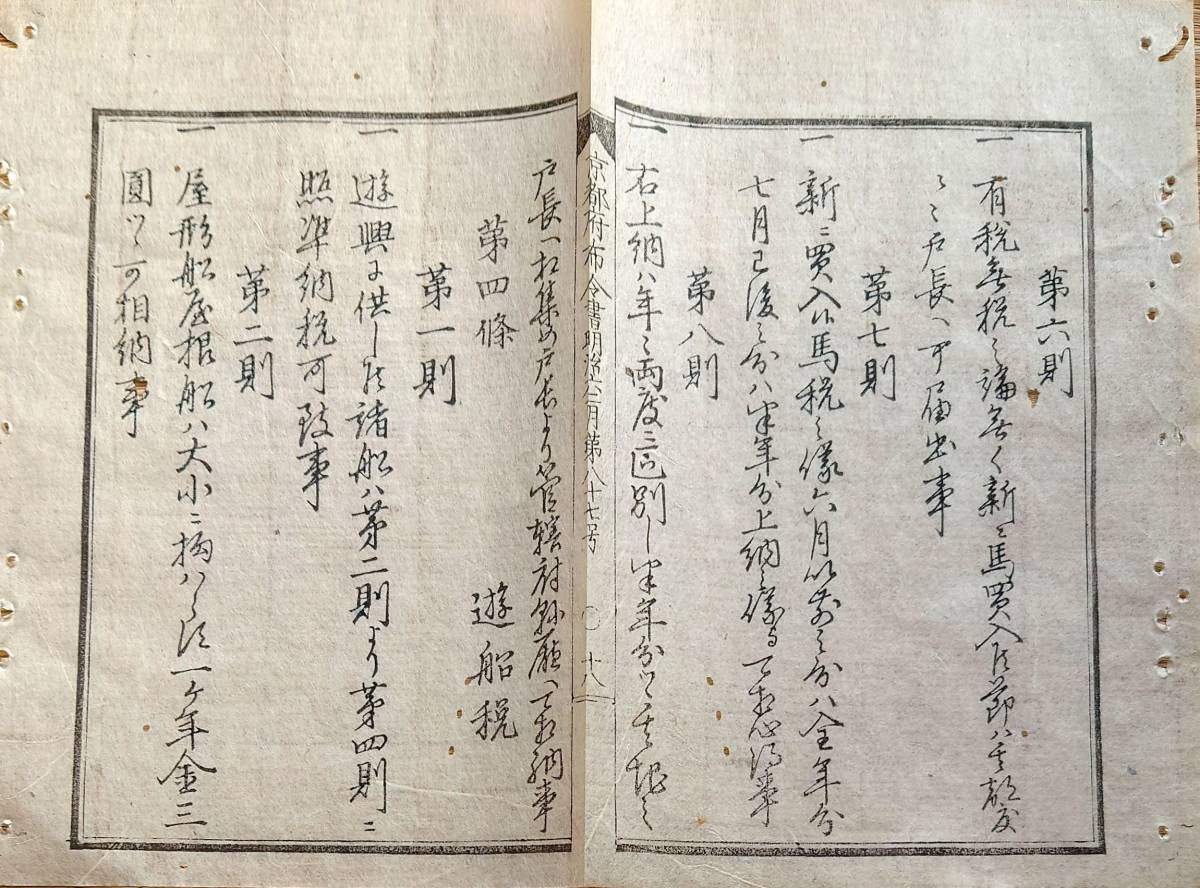 第六則
一 有税無税之論無ク新ニ馬買入候節ハ其都度
之ヲ戸長ヘ可届出事
第七則
一 新ニ買入候馬税之儀六月以前之分ハ全年分
七月已後之分ハ半年分上納之儀与可相心得事
第八則
一 右上納ハ年々両度ニ区別シ半年分ツヽ其地之
京都府布令書明治六年二月第八十七号 〇 十八
戸長ヘ相集め戸長より管轄府縣廳ヘ可相納事
第四條 遊船税
第一則
一 遊興に供し候諸船ハ第二則より第四則ニ
照準納税可致事
第二則
一 屋形船屋根船ハ大小ニ拘ハらす一ケ年金三
圓ツヽ可相納事